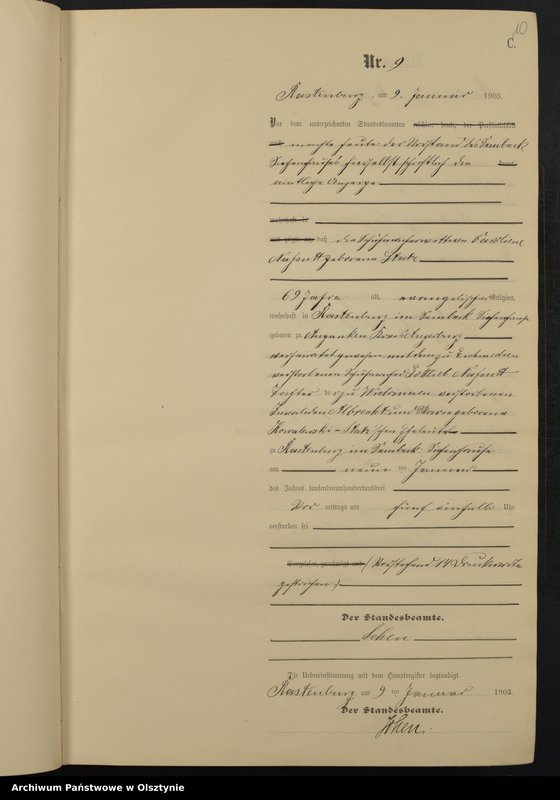 10
C.
Nr. 9
Rastenburg, am 9. Januar 1903.
Vor dem unterzeichneten Standesbeamten erschien heute, der Persönlichkeit
nach machte heute der Vorstand des Sembeck
Siechenhauses hierselbst schriftlich die kannt,
amtliche Anzeige
wohnhaft in
und zeigte an, daß die Schuhmacherwittwe Caroline
geborene
69 Jahre alt, evangelischer Religion,
wohnhaft in Rastenburg im Sembeck Siechenhause
geboren zu Kreis Angerburg
verheiratet gewesen mit dem zu
verstorbenen Schuhmacher Gottlieb
Tochter der zu verstorbenen
Invaliden Albrecht und Marie geborene
Kowalewski - schen Eheleute
zu Rastenburg im Sembeck Siechenhause
am neun ten Januar
des Jahres tausendneunhundertunddrei
Vor mittags um fünf einhalb Uhr
verstorben sei
Vorgelesen, genehmigt und (Vorstehend 14 Druckworte
gestrichen.)
Der Standesbeamte.
Die Uebereinstimmung mit dem Hauptregister beglaubigt.
Rastenburg am 9 ten Januar 1903.
Der Standesbeamte.
Archiwum Państwowe w Olsztynie